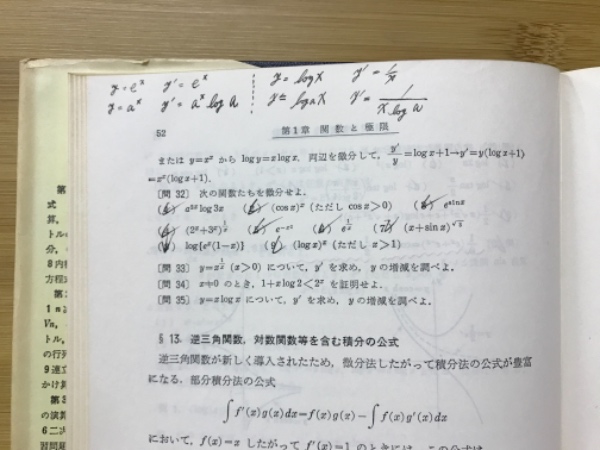 y=e^x y'=e^x y=log x y'=1/x
y=a^x y'=a^x log a y=log_a x y'=1/(x log a)
52 第1章 関数と極限
または y=x^x から log y=x log x. 両辺を微分して, y'/y=log x+1→y'=y(log x+1)
=x^x(log x+1).
[問 32] 次の関数たちを微分せよ.
a^{2x} log 3x (cos x)^x (ただし cos x>0) e^{sin x}
(2^x+3^x)^x e^{-x^2} e^{1/x} (x+sin x)^{√3}
log{e^x(1-x)} (log x)^x (ただし x>1)
[問 33] y=x^{1/x} (x>0) について, y' を求め, y の増減を調べよ.
[問 34] x≠0 のとき, 1+x log 2<2^x を証明せよ.
[問 35] y=x log x について, y' を求め, y の増減を調べよ.
§13. 逆三角関数, 対数関数等を含む積分の公式
逆三角関数が新しく導入されたため, 微分法したがって積分法の公式が豊富
になる. 部分積分法の公式
∫f'(x)g(x)dx=f(x)g(x)-∫f(x)g'(x)dx
において, f(x)=x したがって f'(x)=1 のときには, この公式は
第
式
算,
トル
分,
8内
方程
第
1 n
Vn,
トル,
の行列
9連立
かけ算
第3
の演算
6二次
習問題